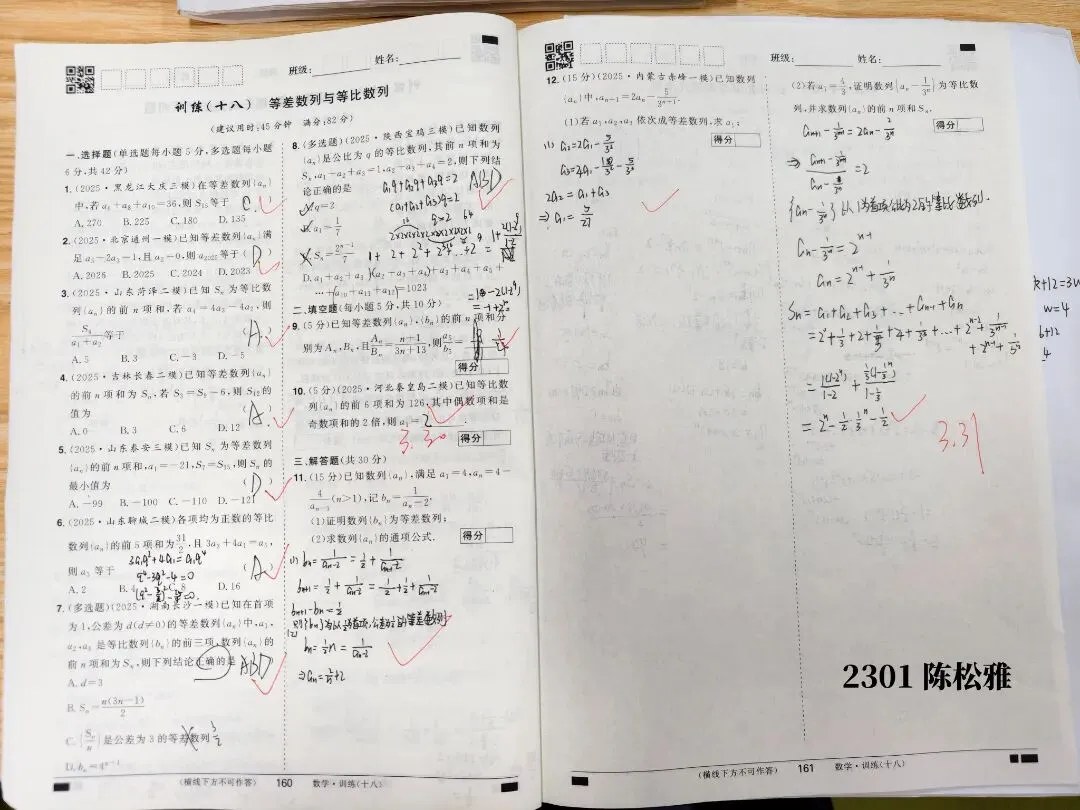 班级: 姓名:
训练(十八) 等差数列与等比数列
(建议用时:45分钟 满分:82分)
一、选择题(单选题每小题5分,多选题每小题
6分,共42分)
1.(2025·黑龙江大庆三模)在等差数列{aₙ}
中,若a₄+a₈+a₁₀=36,则S₁₅等于 ( C )
A.270 B.225 C.180 D.135
2.(2025·北京通州一模)已知等差数列{aₙ}满
足a₅-2a₃=1,且a₂=0,则a₂₀₂₅等于( D )
A.2026 B.2025 C.2024 D.2023
3.(2025·山东菏泽二模)已知Sₙ为等比数
列{aₙ}的前n项和,若a₁=4a₃-4a₂,则
等于 ( A )
A.5 B.3 C.-3 D.-5
4.(2025·吉林长春二模)已知等差数列{aₙ}
的前n项和为Sₙ,若S₃=S₆=6,则S₁₀的
值为 ( A )
A.0 B.3 C.6 D.12
5.(2025·山东泰安三模)已知Sₙ为等差数列
{aₙ}的前n项和,a₁=-21,S₇=S₁₅,则Sₙ的
最小值为 ( D )
A.-99 B.-100 C.-110 D.-121
6.(2025·山东聊城二模)各项均为正数的等比
数列{aₙ}的前5项和为31/2,且3a₃+4a₁=a₅,
3a₁q²+4a₁=a₁q⁴
则a₃等于 ( A )
q⁴-3q²-4=0
A.2 B.4 C.8 D.16
7.(多选题)(2025·湖南长沙一模)已知在首项
为1,公差为d(d≠0)的等差数列{aₙ}中,a₁,
a₂,a₆是等比数列{bₙ}的前三项,数列{aₙ}的
前n项和为Sₙ,则下列结论正确的是 ABD
A.d=3
B.Sₙ=n(3n-1)/2
C.{Sₙ/n}是公差为3的等差数列 3/2
D.bₙ=4ⁿ⁻¹
(横线下方不可作答) 160 数学·训练(十八)
8.(多选题)(2025·陕西宝鸡三模)已知数列
{aₙ}是公比为q的等比数列,其前n项和为
Sₙ,a₁+a₂+a₃=1,a₂+a₃+a₄=2,则下列结
论正确的是 ABD
a₁q+a₂q+a₃q=2
A.q=2 (a₁+a₂+a₃)q=2
B.a₁=1/7 q=2
C.Sₙ=2ⁿ⁻¹/7
D.a₁+a₂+a₃+(a₂+a₃+a₄)+a₃+a₄+a₅+
…+(a₁₀+a₁₁+a₁₂)=1023
二、填空题(每小题5分,共10分)
9.(5分)已知等差数列{aₙ},{bₙ}的前n项和分
别为Aₙ,Bₙ,且Aₙ/Bₙ=(n+1)/(3n+13),则a₅/b₅=
得分
10.(5分)(2025·河北秦皇岛二模)已知等比数
列{aₙ}的前6项和为126,其中偶数项和是
奇数项和的2倍,则a₁= 2
3.30
得分
三、解答题(共30分)
11.(15分)已知数列{aₙ},满足a₁=4,aₙ=4-
4/aₙ₋₁(n>1),记bₙ=1/(aₙ-2).
(1)证明数列{bₙ}为等差数列;
(2)求数列{aₙ}的通项公式.
得分
(1) bₙ=1/(aₙ-2)=1/2+1/(aₙ₋₁-2)
bₙ₊₁-bₙ=1/2
则{bₙ}为以1/2为首项,公差为1/2的等差数列
(2)
bₙ=1/2n=1/(aₙ-2)
⇒aₙ=2/n+2
班级: 姓名:
12.(15分)(2025·内蒙古赤峰一模)已知数列
{aₙ}中,aₙ₊₁=2aₙ-5/3ⁿ⁺¹.
(1)若a₁,a₂,a₃依次成等差数列,求a₁;
得分
(1) a₂=2a₁-5/3²
a₃=2a₂-5/3³
2a₂=a₁+a₃
⇒a₁=5/27
(2)若a₁=4/3,证明数列{aₙ-1/3ⁿ}为等比数
列,并求数列{aₙ}的前n项和Sₙ.
得分
{aₙ-1/3ⁿ}以1为首项,公比为2的等比数列.
aₙ-1/3ⁿ=2ⁿ⁻¹
aₙ=2ⁿ⁻¹+1/3ⁿ
Sₙ=a₁+a₂+a₃+…+aₙ₋₁+aₙ
3.31
w=4
2301 陈松雅
(横线下方不可作答) 161 数学·训练(十八)